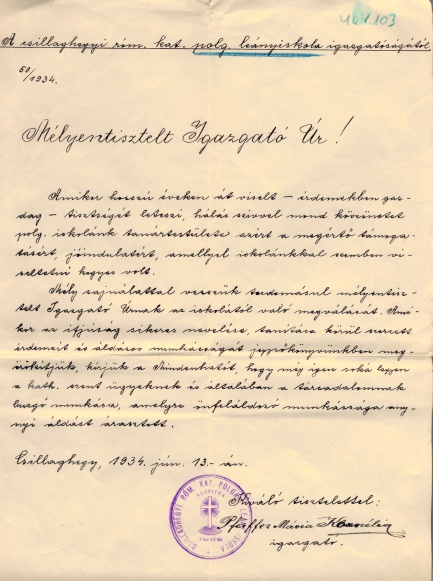 461.103
A csillaghegyi róm. kat. polg. leányiskola igazgatóságától
50/1934.
Mélyentisztelt Igazgató Úr!
Amikor hosszú éveken át viselt – érdemekben gaz-
dag – tisztségét leteszi, hálás szívvel mond köszönetet
polg. iskolánk tanártestülete azért a megértő támoga-
tásért, jóindulatért, amellyel iskolánkkal szemben vi-
seltetni kegyes volt.
Mély sajnálattal vesszük tudomásul mélyentisz-
telt Igazgató Úrnak az iskolától való megválását. Ami-
kor az ifjúság sikeres nevelése, tanítása körül szerzett
érdemeit és áldásos munkásságát jegyzőkönyvünkben meg-
örökítjük, kérjük a Mindenhatót, hogy még igen soká legyen
a kath. szent ügyeknek és általában a társadalomnak
buzgó munkása, amelyre önfeláldozó munkássága any-
nyi áldást árasztott.
Csillaghegy, 1934. jún. 13-án.
Kiváló tisztelettel:
Pfeiffer Mária
igazgató.
CSILLAGHEGYI RÓM. KAT. POLGÁRI LEÁNYISKOLA
ALAPÍTVA